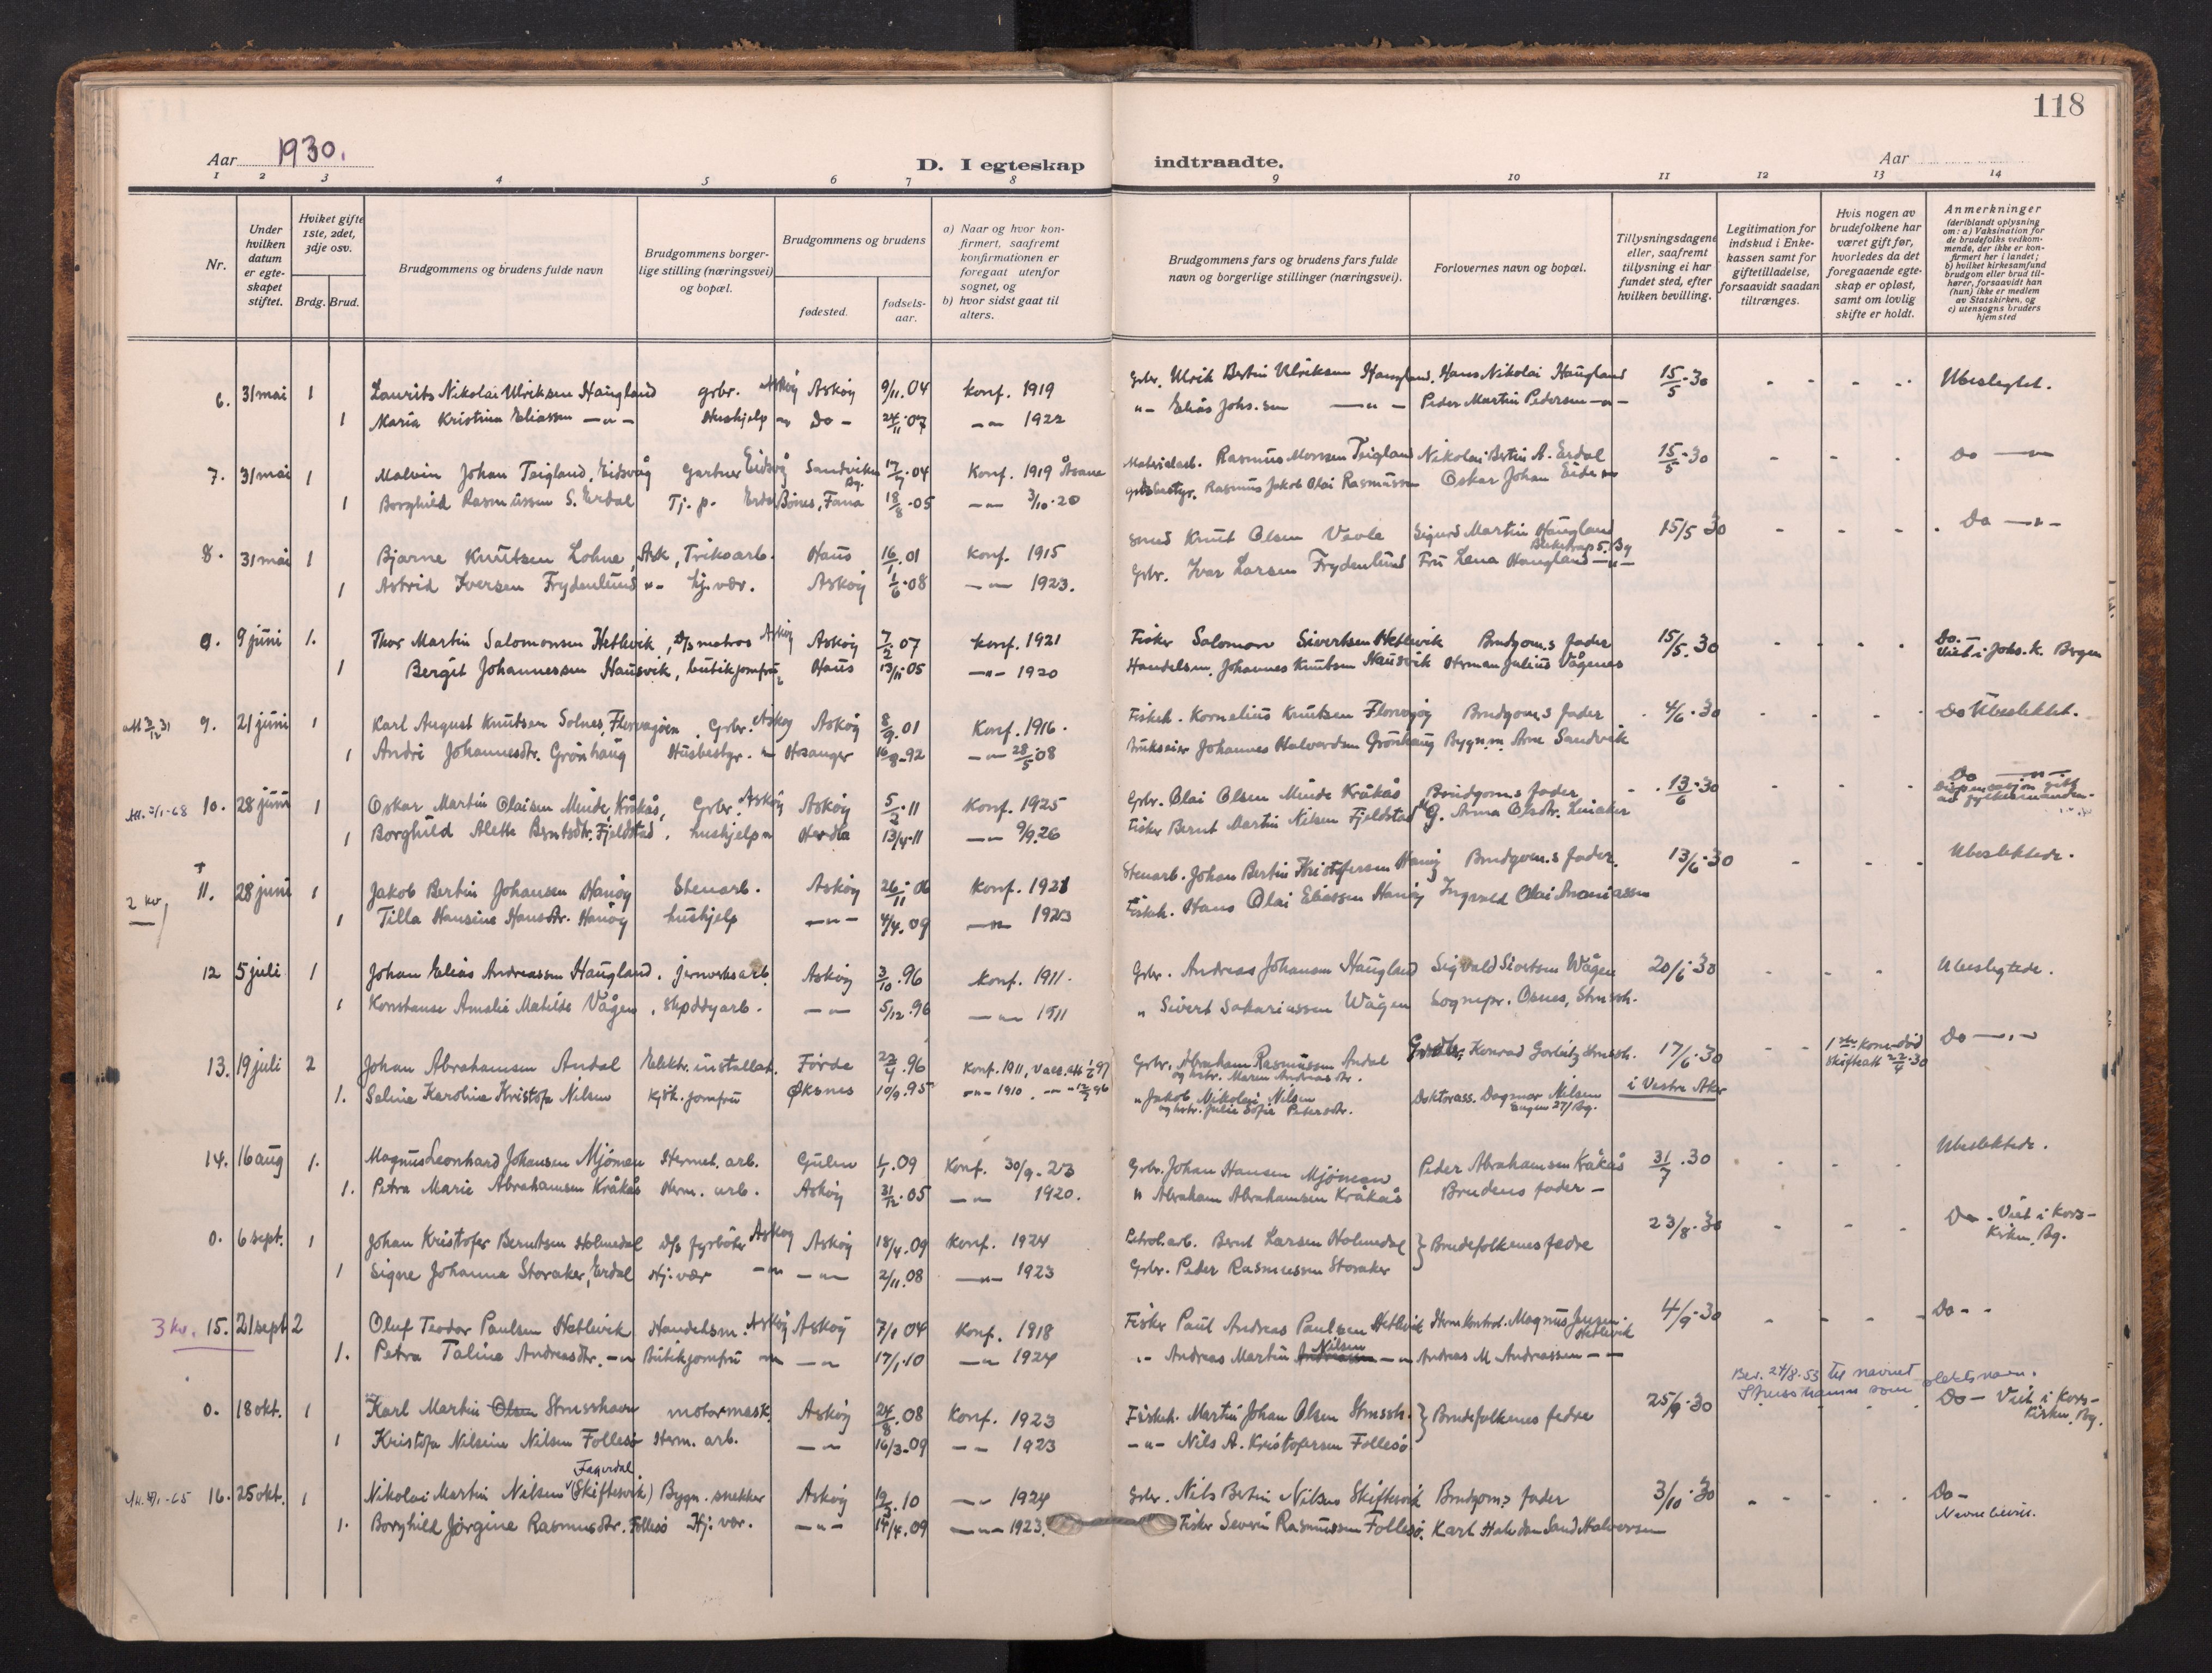 118
Aar 1930.
D. I egteskap indtraadte.
Aar
1 2 3 4 5 6 7 8 9 10 11 12 13 14
Nr.
Under hvilken datum er egte-skapet stiftet.
Hviket gifte 1ste, 2det, 3dje osv.
Brdg. Brud.
Brudgommens og brudens fulde navn
Brudgommens borger-lige stilling (næringsvei) og bopæl.
Brudgommens og brudens
fødested.
fødsels-aar.
a) Naar og hvor kon-firmert, saafremt konfirmationen er foregaat utenfor sognet, og
b) hvor sidst gaat til alters.
Brudgommens fars og brudens fars fulde navn og borgerlige stillinger (næringsvei).
Forlovernes navn og bopæl.
Tillysningsdagene eller, saafremt tillysning ei har fundet sted, efter hvilken bevilling.
Legitimation for indskud i Enke-kassen samt for giftetilladelse, forsaavidt saadan tiltrænges.
Hvis nogen av brudefolkene har været gift før, hvorledes da det foregaaende egte-skap er opløst, samt om lovlig skifte er holdt.
Anmerkninger
(deriblandt oplysning om: a) Vaksination for de brudefolks vedkom-mende, der ikke er kon-firmert her i landet; b) hvilket kirkesamfund brudgom eller brud til-hører, forsaavidt han (hun) ikke er medlem av Statskirken, og c) utensogns bruders hjemsted
6. 31 mai 1 Laurits Nikolai Ulriksen Haugland grbr. Askøy Askøy 9/11.04 Konf. 1919 Grbr. Ulrik Bertin Ulriksen Haugland. Hans Nikolai Haugland 15/5-30 - - - - Ubeslegtet.
1 Maria Kristina Eliassen -"- Hushjelp -"- Do - 24/11.07 -"- 1922 "- Elias Johs.sen -"- Peder Martin Pedersen -"-
7. 31 mai 1 Malvin Johan Teigland, Eidsvåg Gartner Eidsvåg Sandviken Bg. 17/7.04 Konf. 1919 Åsane Materialarb. Rasmus Monsen Teigland Nikolai Bertin A. Erdal 15/5-30 Do -"-
1 Borghild Rasmussen S. Erdal Tj. p. Erdal Bönes, Fana 18/8.05 -"- 3/10.20 Gårdsbestyr. Rasmus Jakob Olai Rasmussen Oskar Johan Eide
8. 31 mai 1 Bjarne Knutsen Lohne, Ask, Trikoarb. Haus 16/1.01 Konf. 1915 Smed Knut Olsen Vevle Sigurd Martin Haugland 15/5 30 - - - Do -"-
1 Astrid Iversen Frydenlund "- Hj. vær. Askøy 1/6.08 -"- 1923. Grbr. Ivar Larsen Frydenlund Fru Lena Haugland -"-
0. 9 juni 1. Thor Martin Salomonsen Hetlevik, D/s matros Askøy Askøy 7/2 07 Konf. 1921 Fisker Salomon Sivertsen Hetlevik Brudgom.s fader 15/5.30 - - - Do. Viet i Johs. K. Bergen
1 Bergit Johannessen Hausvik, butikjomfru Haus 13/11 05 -"- 1920 Handelsm. Johannes Knutsen Hausvik Herman Julius Vågenes
att 3/12 31 9. 21 juni 1 Karl August Knutsen Solnes, Florvagöen Grbr. Askøy Askøy 8/9.01 Konf. 1916. Fisker. Kornelius Knutsen Florvagøy Brudgom.s fader 4/6.30 - - - Do Ubeslektet.
1 Andri Johannesdtr. Grönhaug Husbestyr. -"- Hosanger 16/8-92 -"- 28/5.08 Bruksier Johannes Halvordsen Grönhaug Bygn.m. Arne Sandvik
Att. 3/1-68 10. 28 juni 1 Oskar Martin Olaisen Minde, Kråkås, Grbr. Askøy Askøy 5/2.11 Konf. 1925 Grbr. Olai Olsen Minde Kråkås Brudgom.s fader 13/6.30 Do -"- Dispensasjon gitt av fylkesmanden.
1 Borghild Alette Berntsdtr. Fjeldstad, hushjelp " Herdla 13/4.11 -"- 9/9.26 Fisker Bernt Martin Nilsen Fjeldstad G. Anna Olsdtr.
2 kv. 11. 28 juni 1 Jakob Bertin Johansen Hanøy Stenarb. Askøy 26/11.06 Konf. 1921 Stenarb. Johan Bertin Kristofersen Hanøy Brudgom.s fader. 13/6.30 - - - Ubeslektede.
1 Tilla Hansine Hansdtr. Hanøy hushjelp -"- 4/4.09 -"- 1923 Fisker. Hans Olai Eliassen Hanøy Ingvald Olai Ananiassen
12 5 juli 1 Johan Elias Andreassen Haugland. jernverksarb. Askøy 3/10.96 Konf. 1911. Grbr. Andreas Johansen Haugland Sigvald Sivertsen Wågen 20/6.30 - - - Ubeslegtede.
1 Konstanse Amalie Matilde Vågen, shoddyarb. -"- 5/12.96 -"- 1911 " Sivert Sakariassen Wågen Sognepr. Osnes, Strussh.
13. 19 juli 2 Johan Abrahamsen Andal Elektr. installat. Førde 23/4.96 Konf. 1911, Vacs. att 1/6 97 Grbr. Abraham Rasmussen Andal og hstr. Maren Andreasdtr. Konrad Gorbitz Strussh. 17/6.30 - - 1ste kone død Skifteatt 22/4.30 Do -"-
1. Selina Karoline Kristofa Nilsen Kjøk. jomfru Øksnes 10/9.95 -"- 1910. -"- 12/7 96 " Jakob Nikolai Nilsen og hstr. Julie Sofie Petersdtr. Doktorass. Dagmar Nilsen Engen 27/Bg. i Vestre Aker
14. 16 aug 1. Magnus Leonhard Johansen Mjömen Hermet. arb. Gulen 1/1.09 Konf. 30/9.23 Grbr. Johan Hansen Mjömen Peder Abrahamsen Kråkås 31/7.30 - - - Ubeslektede.
1. Petra Marie Abrahamsen Kråkås Herm. arb. Askøy 31/12.05 -"- 1920. " Abraham Abrahamsen Kråkås Brudens fader -
0. 6 sept. 1 Johan Kristofer Berntsen Holmedal D/s fyrböter Askøy Askøy 18/4.09 Konf. 1924 Petrol.arb. Bernt Larsen Holmedal } Brudefolkenes fedre 23/8.30 - - - Do. Viet i Kors-kirken, Bg.
1 Signe Johanna Storaker, Erdal Hj. vær -"- -"- 2/11.08 -"- 1923 Grbr. Peder Rasmussen Storaker
3 kv. 15. 21 sept 2 Oluf Teodor Paulsen Hetlevik Handelsm. Askøy Askøy 7/1 04 Konf. 1918 Fisker Paul Andreas Paulsen Hetlevik Herm.kontrol. Magnus Jensen Hetlevik 4/9.30 - - - Do - -
1. Petra Taline Andreasdtr. -"- Butikjomfru -"- -"- 17/1.10 -"- 1924 "- Andreas Martin Andreassen Nilsen -"- Andreas M. Andreassen - -
Bev. 27/8.53 til navnet Strusshamn som slektsnavn.
0. 18 okt. 1 Karl Martin Olsen Strusshavn motormask. Askøy 24/8.08 Konf. 1923 Fisker. Martin Johan Olsen Strussh. } Brudefolkenes fedre 25/9.30 Do - Viet i Kors-kirken, Bg.
1 Kristofa Nilsine Nilsen Follesö Herm. arb. -"- 16/3.09 -"- 1923 -"- Nils A. Kristofersen Follesö
16. 25 okt. 1 Nikolai Martin Nilsen Fagerdal (Skiftesvik) Bygn. snekker Askøy 19/3.10 -"- 1924 Grbr. Nils Bertin Nilsen Skiftesvik Brudgom.s fader 3/10.30 - - - Do - Navnebevis.
1. Borghild Jörgine Rasmusdtr. Follesö Hj. vær. -"- 14/4.09 -"- 1923. Fisker Severin Rasmussen Follesö. Karl Halvdan Sand Halvorsen